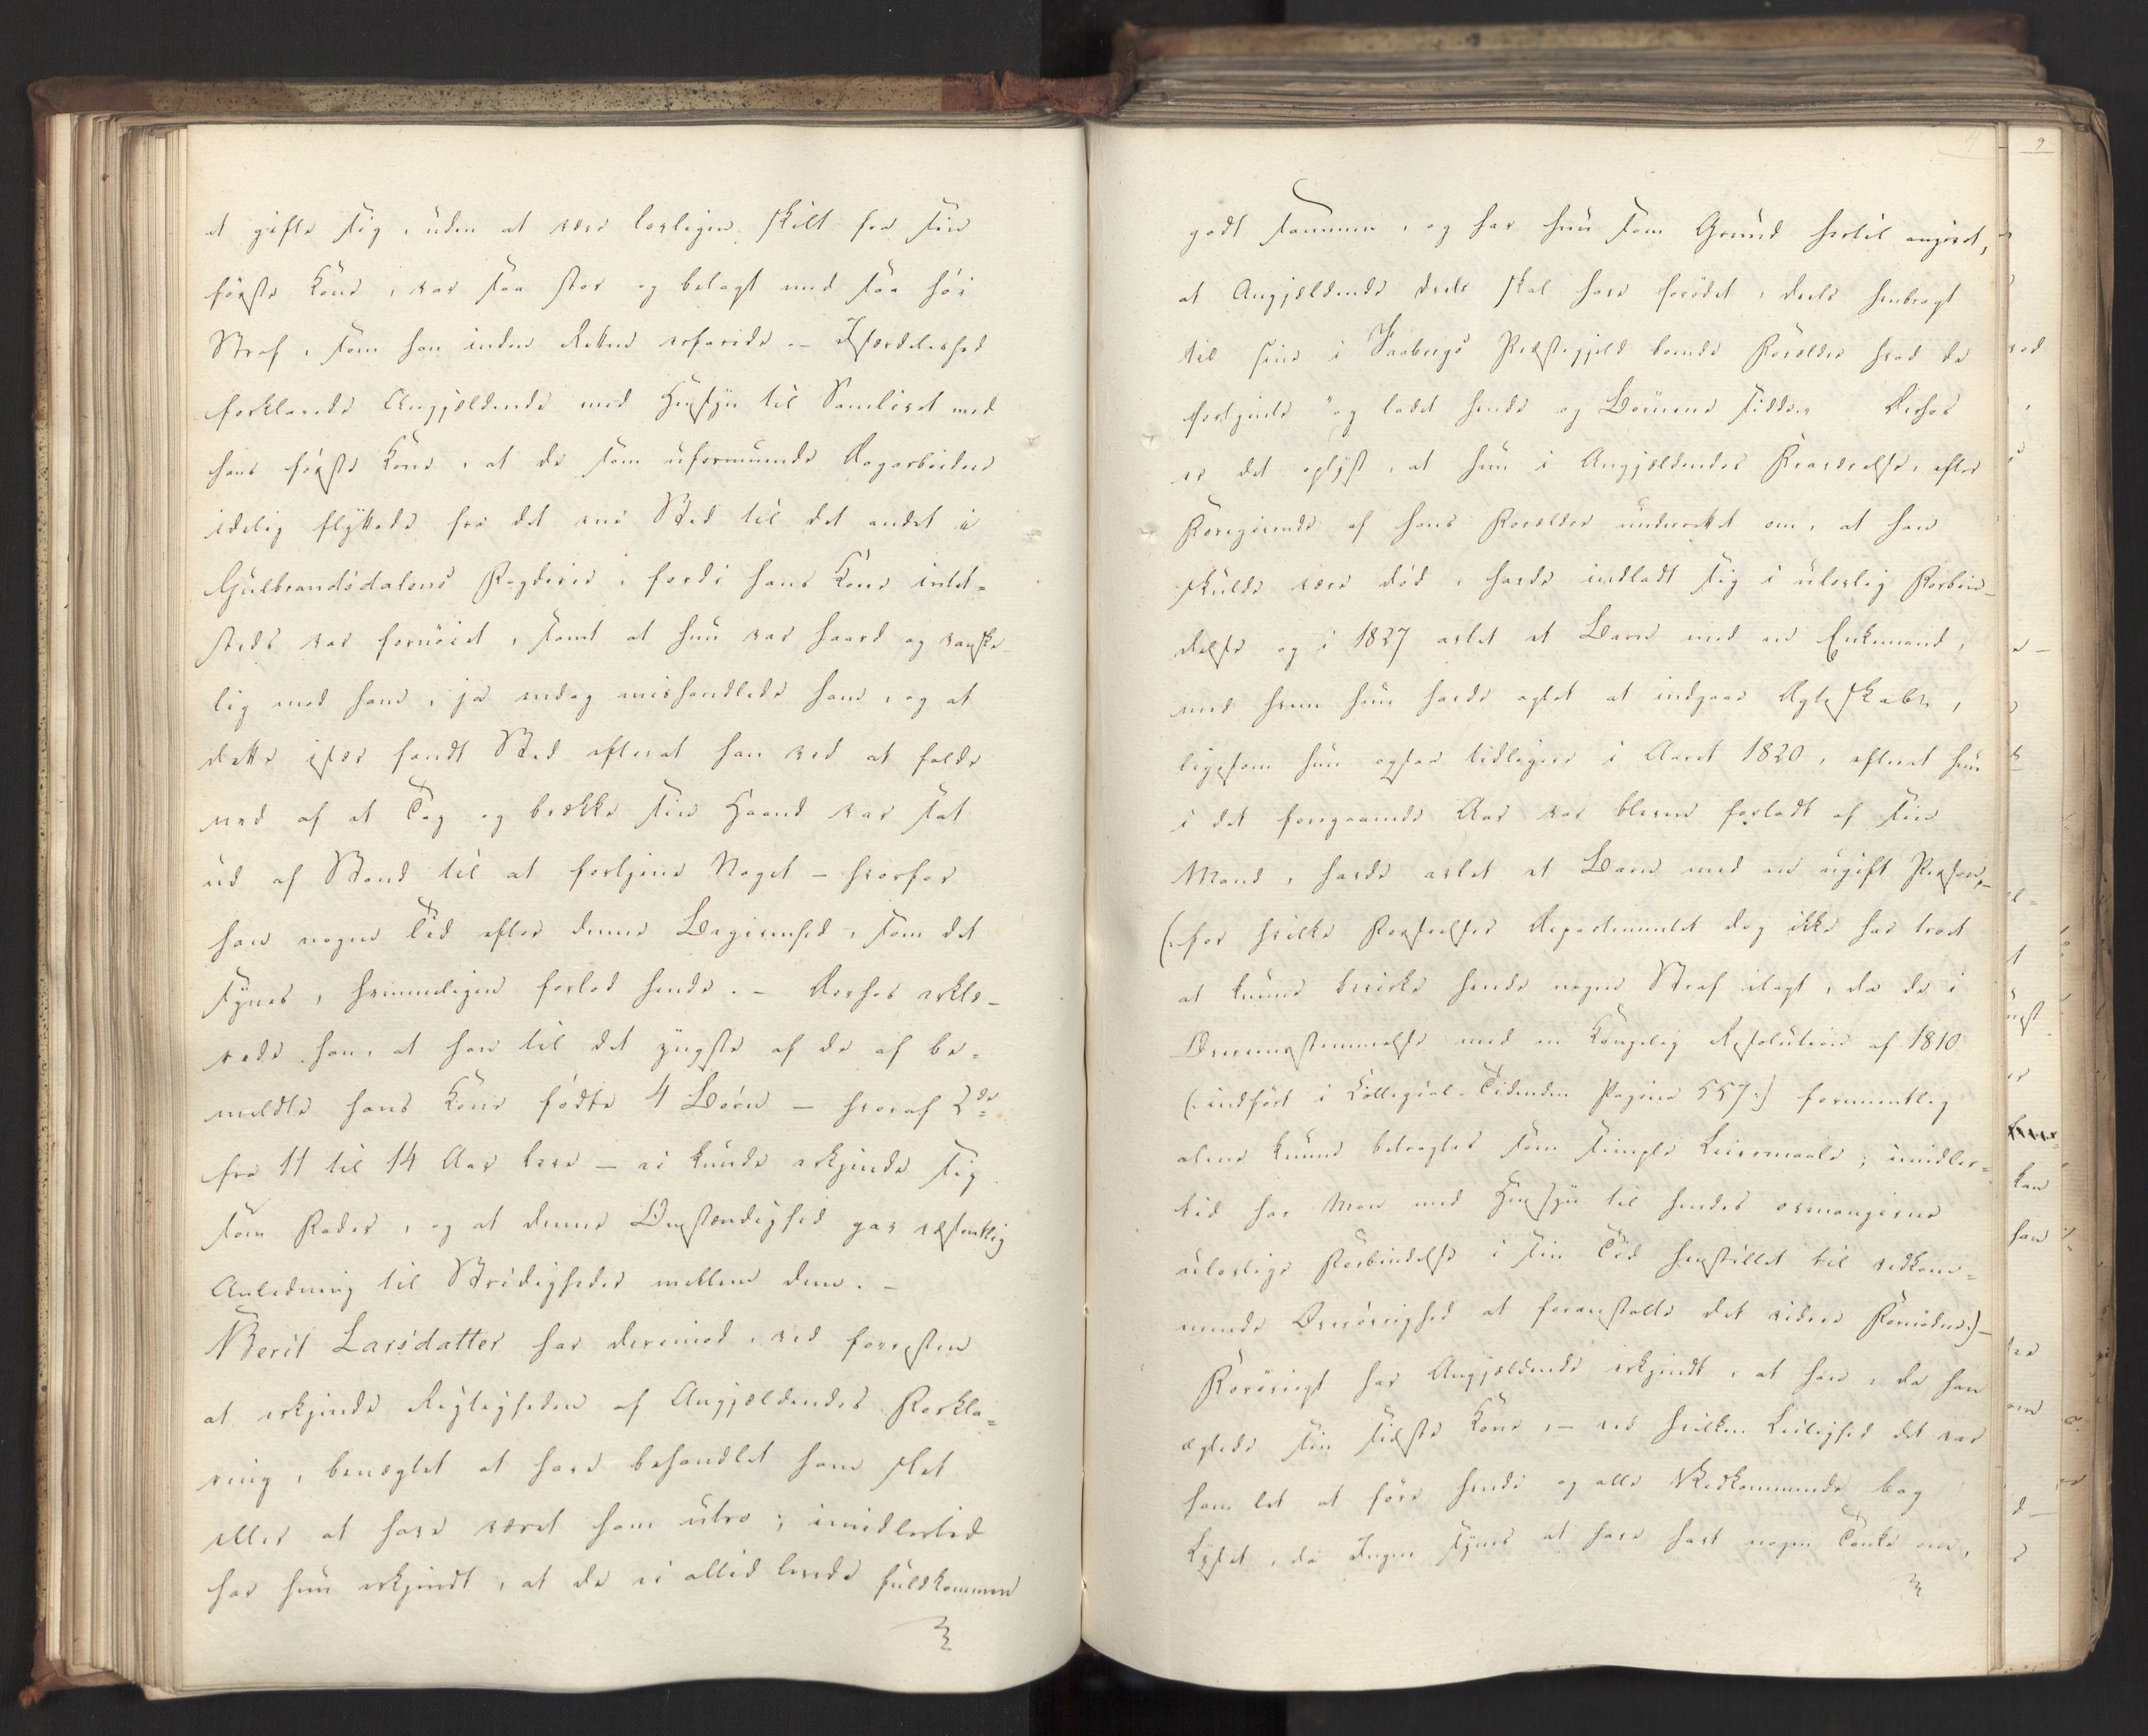 at gifte sig, uden at være lovligen skilt fra sin
første Kone, var saa stor og belagt med saa høi
Straf, som han inden Retten erfarede. – Isærdeleshed
forklarede Angjældende med Hensyn til Samlivet med
hans første Kone, at de som uformuende Dagarbeidere
idelig flyttede fra det ene Sted til det andet i
Gulbrandsdalens Fogderie, fordi hans Kone intet-
steds var fornøiet, samt at hun var haard og vanske-
lig mod ham, ja endog mishandlede ham, og at
dette især fandt Sted efterat han ved at falde
ned af et Tag og brække sin Haand var sat
ud af Stand til at fortjene Noget – hvorfor
han nogen Tid efter denne Begivenhed, som det
synes, hemmeligen forlod hende. – Derhos erklæ-
rede han, at han til det yngste af de af be-
meldte hans Kone fødte 4 Børn – hvoraf 2de
fra 11 til 14 Aar leve – ei kunde erkjende sig
som Fader, og at denne Omstændighed gav væsentlig
Anledning til Stridigheder mellem dem. –
Berit Larsdatter har derimod, ved forresten
at erkjende Rigtigheden af Angjældendes Forkla-
ring, benægtet at have behandlet ham slet
eller at have været ham utro; imidlertid
har hun erkjendt, at de ei altid levede fuldkommen
godt sammen, og har hun som Grund hertil angivet,
at Angjældende deels skal have forødet, deels henbragt
til sine i Faabergs Præstegjeld boende Forældre hvad de
fortjente "og ladet hende og Børnene sidde". Derhos
er det oplyst, at hun i Angjældendes Fraværelse, efter
Foregivende af hans Forældre underrettet om, at han
skulde være død, havde indladt sig i ulovlig Forbin-
delse og i 1827 avlet et Barn med en Enkemand,
med hvem hun havde agtet at indgaae Ægteskab,
ligesom hun ogsaa tidligere i Aaret 1820, efterat hun
i det foregaaende Aar var bleven forladt af sin
Mand, havde avlet et Barn med en ugift Person,
(:for hvilke Forseelser Departementet dog ikke har troet
at kunne bevirke hende nogen Straf ilagt, da de i
Overeensstemmelse med en Kongelig Resolution af 1810
(:indført i Collegial-Tidenden Pagina 557:) formeentlig
alene kunne betragtes som simple Leiermaale; imidler-
tid har Man med Hensyn til hendes ovenangivne
ulovlige Forbindelse i sin Tid henstillet til vedkom-
mende Øvrighed at foranstalte det videre Fornødne:) –
Forøvrigt har Angjældende erkjendt, at han, da han
ægtede sin sidste Kone, – ved hvilken Leilighed det var
ham let at føre hende og alle Vedkommende bag
Lyset, da Ingen synes at have havt nogen Tanke om,